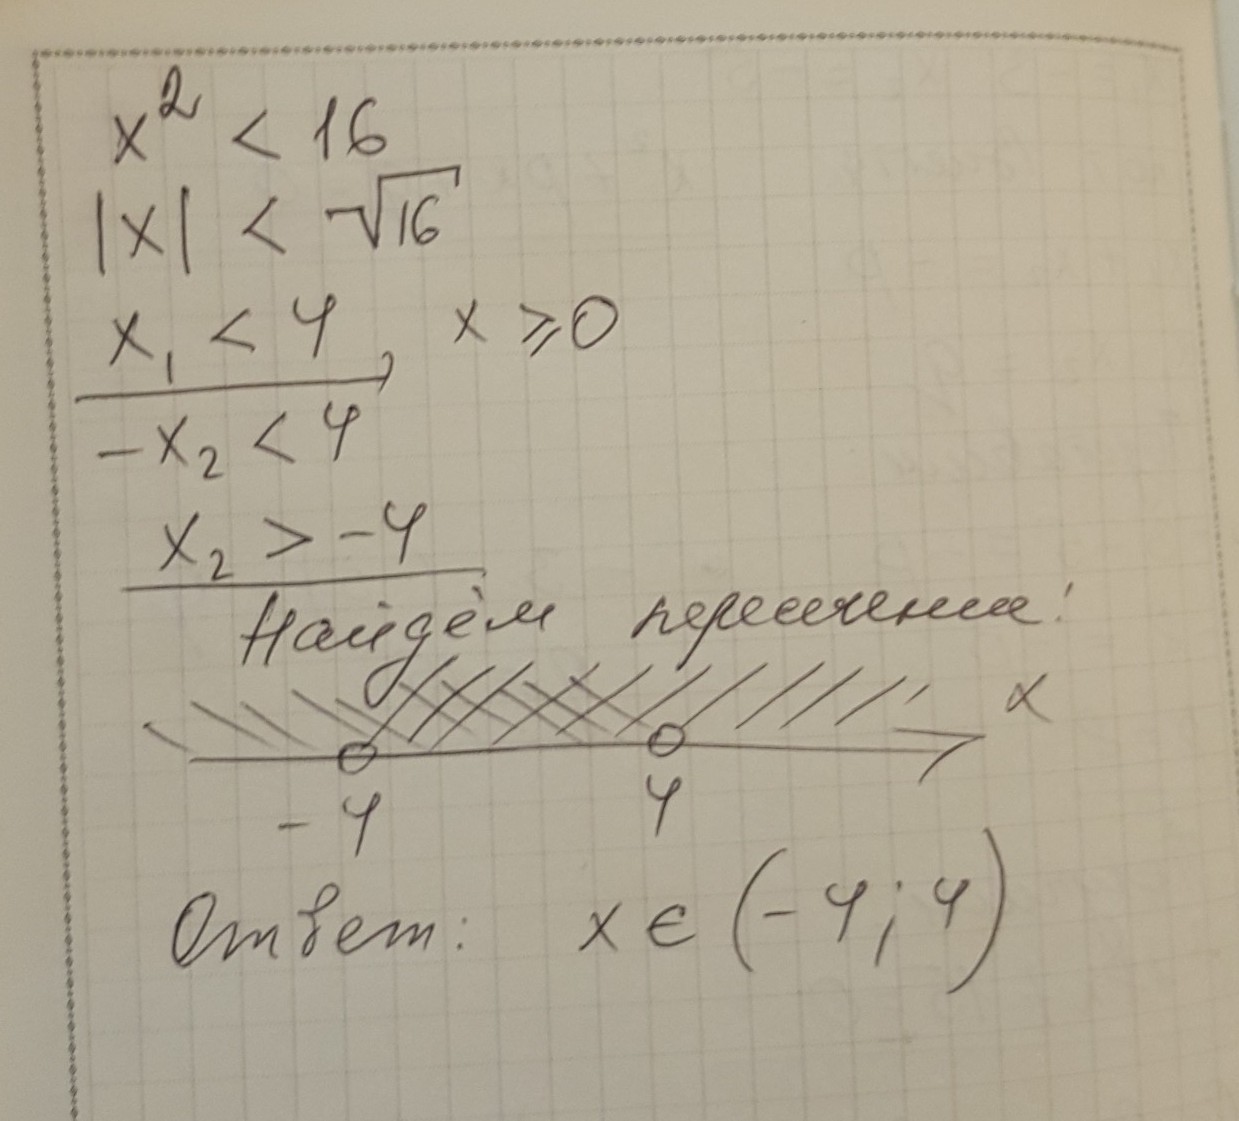 x² < 16
|x| < √16
x₁ < 4, x ⩾ 0
-x₂ < 4
x₂ > -4
Найдём пересечения:
x
-4 4
Ответ: x ∈ (-4; 4)